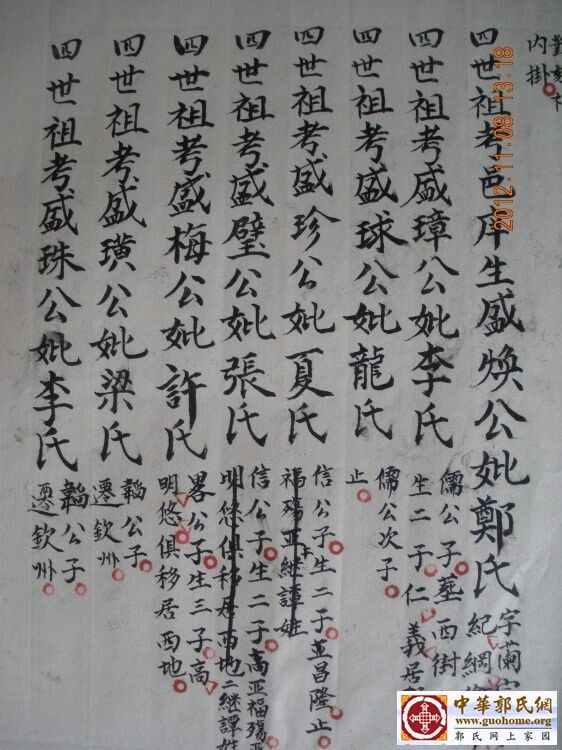 內掛
四世祖考邑庠生盛煥公妣鄭氏
字蘭
紀綱
四世祖考盛璋公妣李氏
儒公子塟西街
生二子仁義居
四世祖考盛球公妣龍氏
儒公次子
止
四世祖考盛珍公妣夏氏
信公子生二子並昌隆止
福殤亚継譚姓
四世祖考盛璧公妣張氏
信公子生二子高亚福殤
明悠俱移居西地二継譚姓
四世祖考盛梅公妣許氏
畧公子生三子高
明悠俱移居西地
四世祖考盛璜公妣梁氏
韜公子
遷欽州
四世祖考盛珠公妣李氏
韜公子
遷欽州
2012.11.08 13:18
中華郭氏網
www.guohome.org
郭氏网上家园